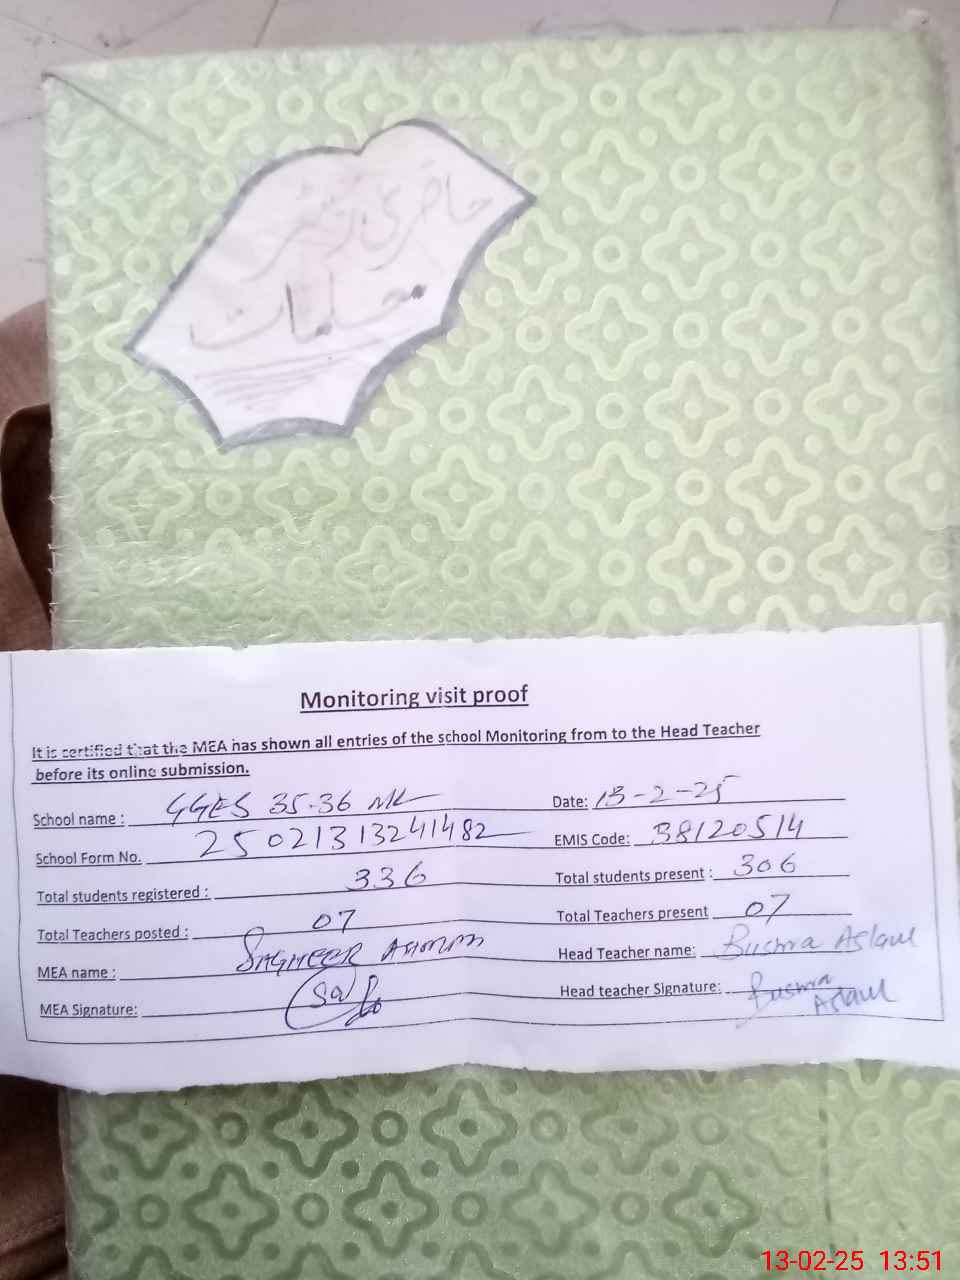 حاضری رجسٹر
معلمات
Monitoring visit proof
It is certified that the MEA has shown all entries of the school Monitoring from to the Head Teacher
before its online submission.
School name : GGES 35.36 ML Date: 13-2-25
School Form No. 25021313241482 EMIS Code: 38120514
Total students registered : 336 Total students present : 306
Total Teachers posted : 07 Total Teachers present 07
MEA name : SAGHEER AHMAD Head Teacher name: Bushra Aslam
MEA Signature: Head teacher Signature: Bushra
Aslam
13-02-25 13:51